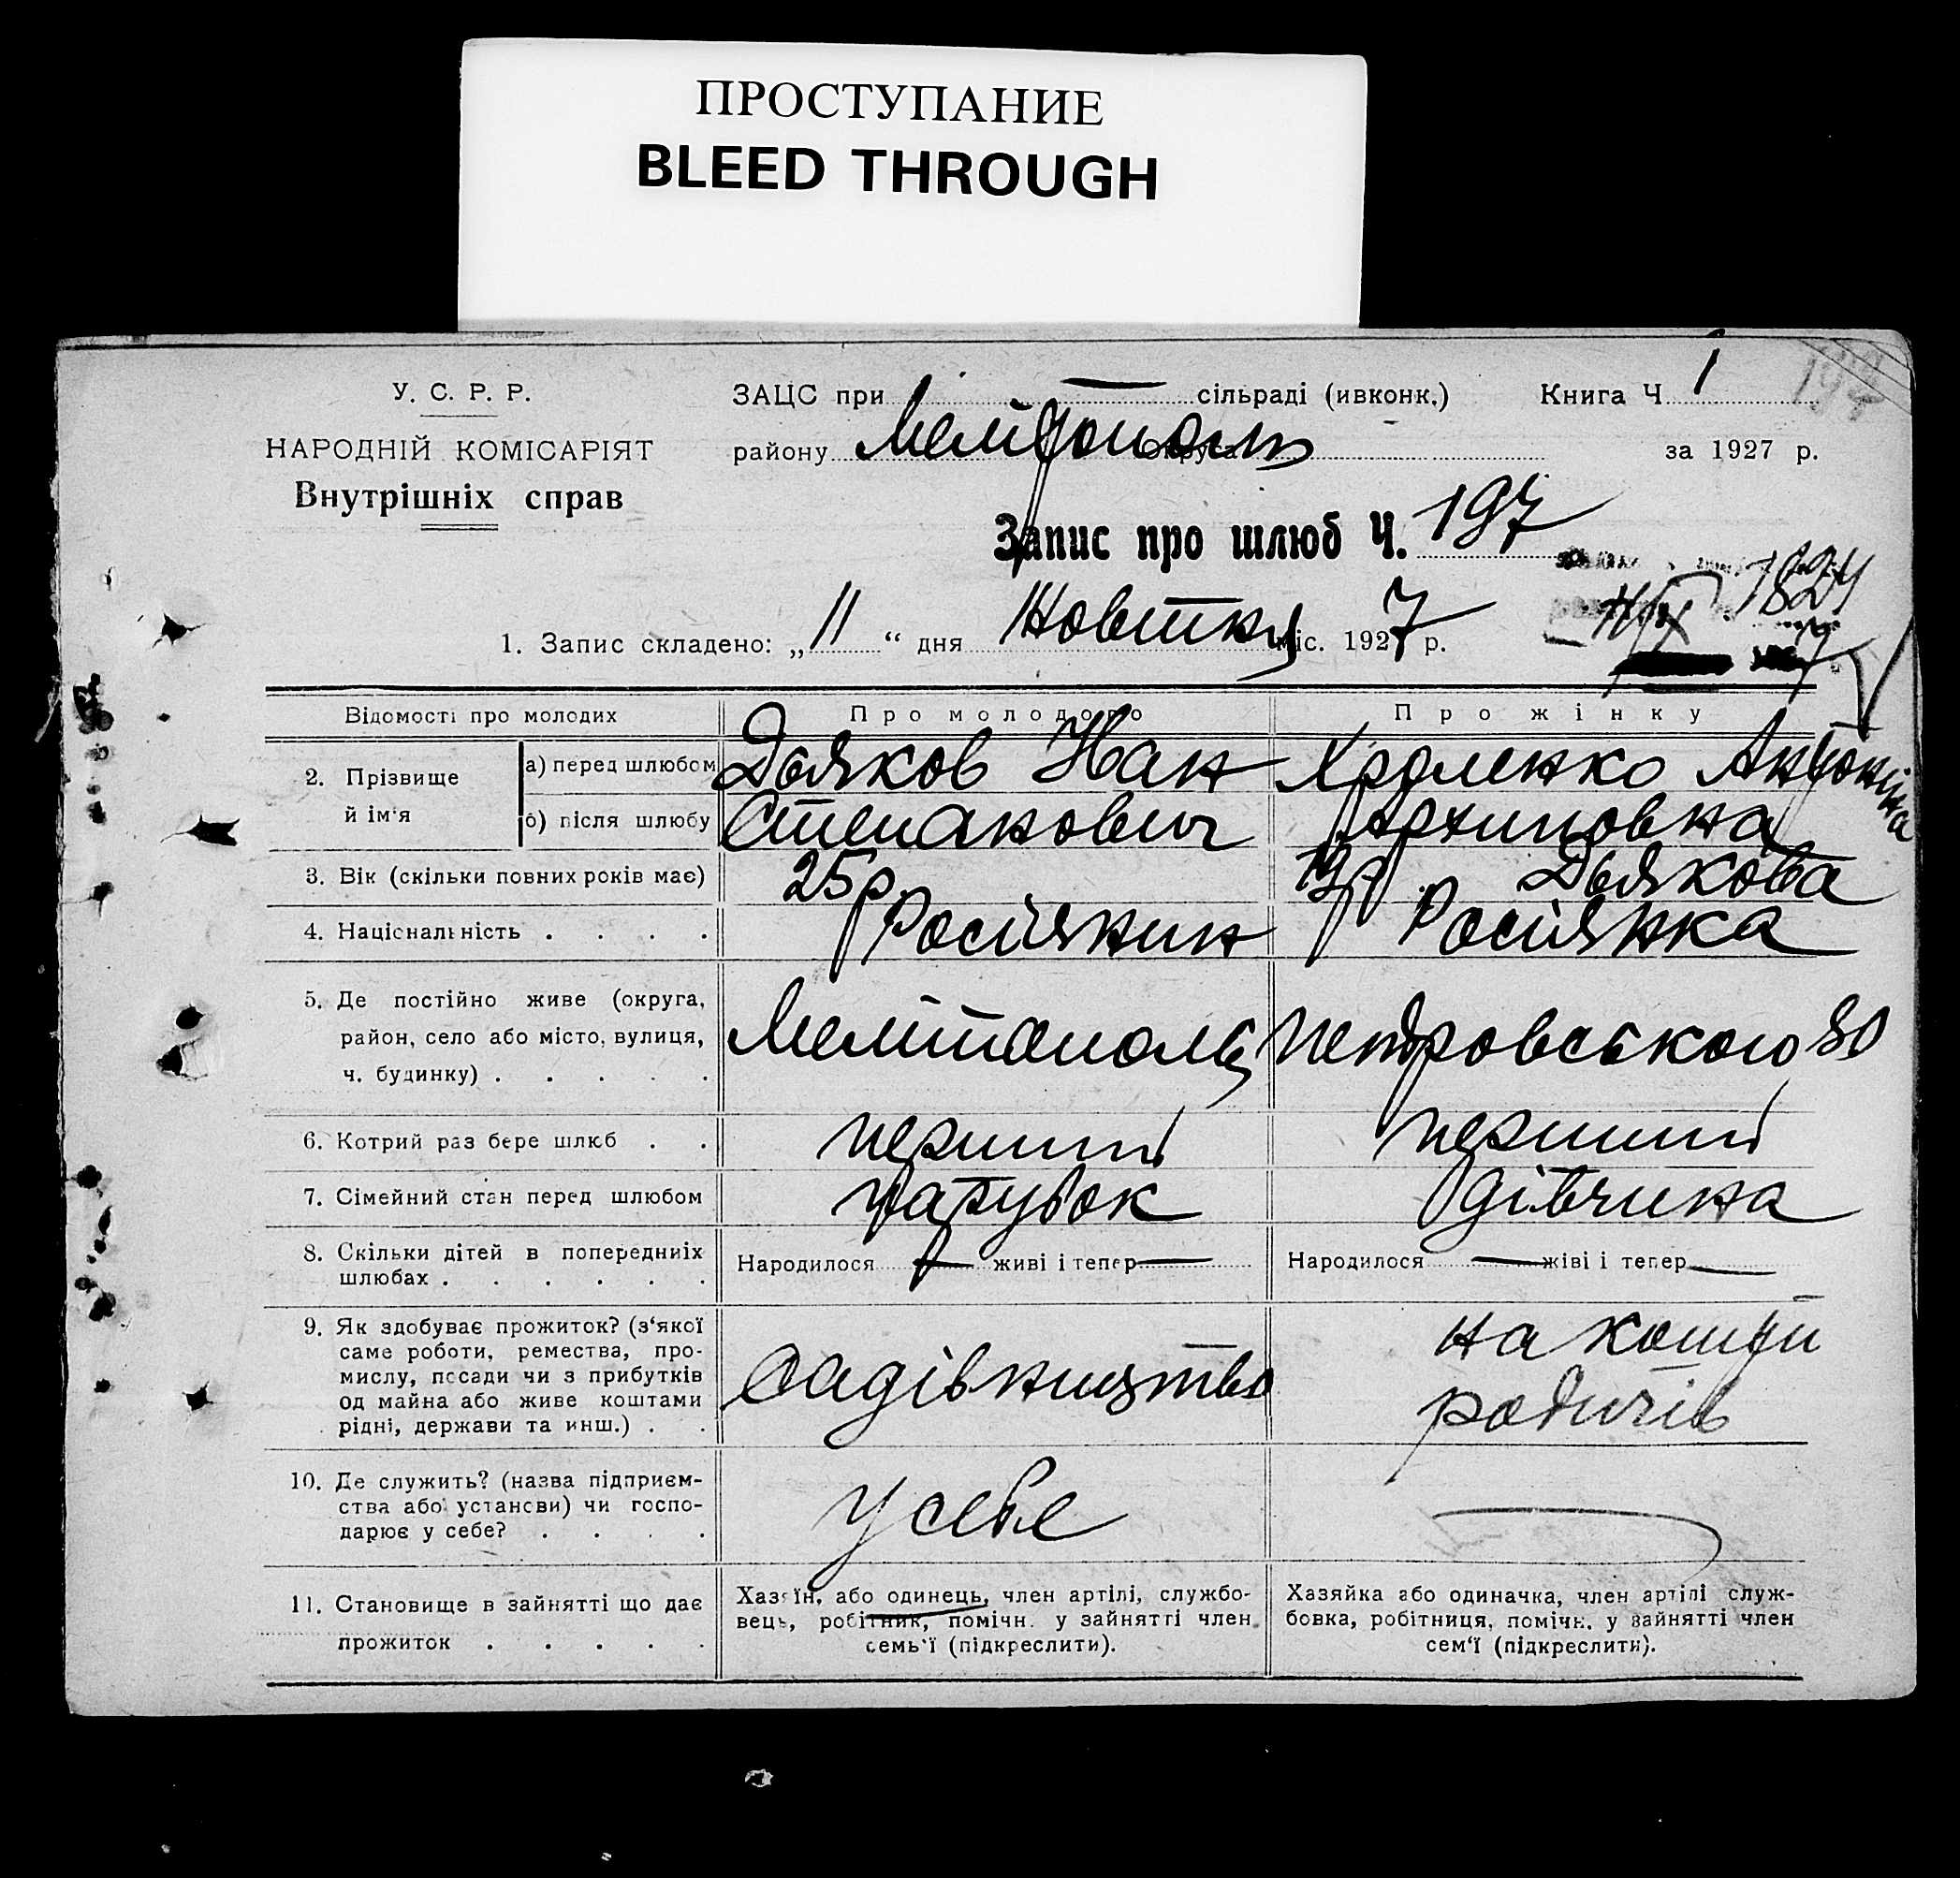 ПРОСТУПАНИЕ
BLEED THROUGH
У. С. Р. Р.
НАРОДНІЙ КОМІСАРІЯТ
Внутрішніх справ
ЗАЦС при — сільраді (ивконк,)
району Мелітополь округа
Книга Ч 1
за 1927 р.
Запис про шлюб Ч. 197
1. Запис складено: „ 11 “ дня Новітня міс. 1927 р.
Відомості про молодих
Про молодого
Про жінку
2. Прізвище й ім'я
а) перед шлюбом
б) після шлюбу
Дьяков Іван
Степанович
Антоніна
Архиповна
Дьякова
3. Вік (скільки повних років має)
25р.
19р.
4. Національність . . . .
Росіянин
Росіянка
5. Де постійно живе (округа,
район, село або місто, вулиця,
ч. будинку) . . . . .
Мелітополь Петровського 80
6. Котрий раз бере шлюб . .
перший
перший
7. Сімейний стан перед шлюбом
парубок
дівчина
8. Скільки дітей в попередниіх
шлюбах . . . . . .
Народилося — живі і тепер —
Народилося — жіві і тепер —
9. Як здобуває прожиток? (з'якої
саме роботи, ремества, про-
мислу, посади чи з прибутків
од майна або живе коштами
рідні, держави та инш.) . .
Садівництво
на кошти
родичів
10. Де служить? (назва підприєм-
ства або установи) чи госпо-
дарює у себе? . . . .
У себе
11. Становище в зайнятті що дає
прожиток . . . . .
Хазяїн, або одинець, член артілі, службо-
вець, робітник, помічн. у зайнятті член
семь'ї (підкреслити).
Хазяйка або одиначка, член артілі служ-
бовка, робітниця, помічн. у зайнятті член
сем'ї (підкреслити).